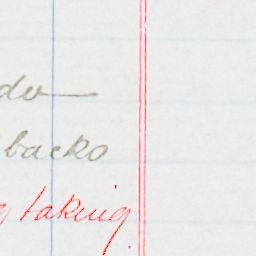 do
backs
taking